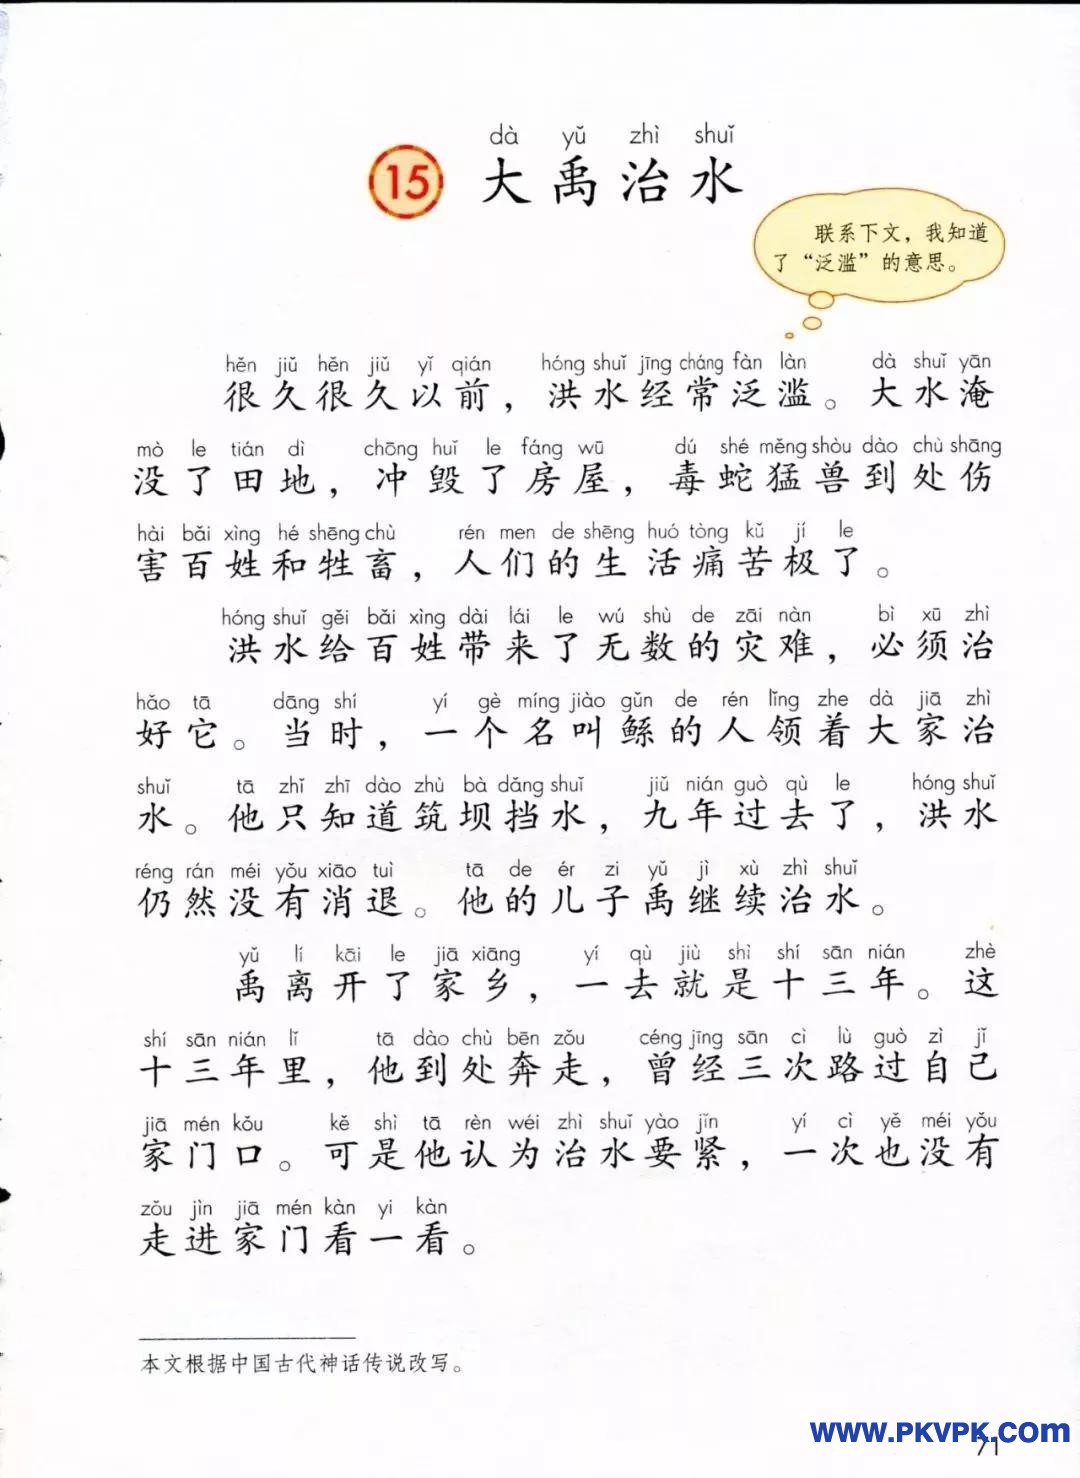 dà yǔ zhì shuǐ
15 大禹治水
联系下文，我知道
了“泛滥”的意思。
hěn jiǔ hěn jiǔ yǐ qián hóng shuǐ jīng cháng fàn làn dà shuǐ yān
很久很久以前，洪水经常泛滥。大水淹
mò le tián dì chōng huǐ le fáng wū dú shé měng shòu dào chù shāng
没了田地，冲毁了房屋，毒蛇猛兽到处伤
hài bǎi xìng hé shēng chù rén men de shēng huó tòng kǔ jí le
害百姓和牲畜，人们的生活痛苦极了。
hóng shuǐ gěi bǎi xìng dài lái le wú shù de zāi nàn bì xū zhì
洪水给百姓带来了无数的灾难，必须治
hǎo tā dāng shí yí gè míng jiào gǔn de rén lǐng zhe dà jiā zhì
好它。当时，一个名叫鲧的人领着大家治
shuǐ tā zhǐ zhī dào zhù bà dǎng shuǐ jiǔ nián guò qù le hóng shuǐ
水。他只知道筑坝挡水，九年过去了，洪水
réng rán méi yǒu xiāo tuì tā de ér zi yǔ jì xù zhì shuǐ
仍然没有消退。他的儿子禹继续治水。
yǔ lí kāi le jiā xiāng yí qù jiù shì shí sān nián zhè
禹离开了家乡，一去就是十三年。这
shí sān nián lǐ tā dào chù bēn zǒu céng jīng sān cì lù guò zì jǐ
十三年里，他到处奔走，曾经三次路过自己
jiā mén kǒu kě shì tā rèn wéi zhì shuǐ yào jǐn yí cì yě méi yǒu
家门口。可是他认为治水要紧，一次也没有
zǒu jìn jiā mén kàn yi kàn
走进家门看一看。
本文根据中国古代神话传说改写。
www.PKVPK.com
71